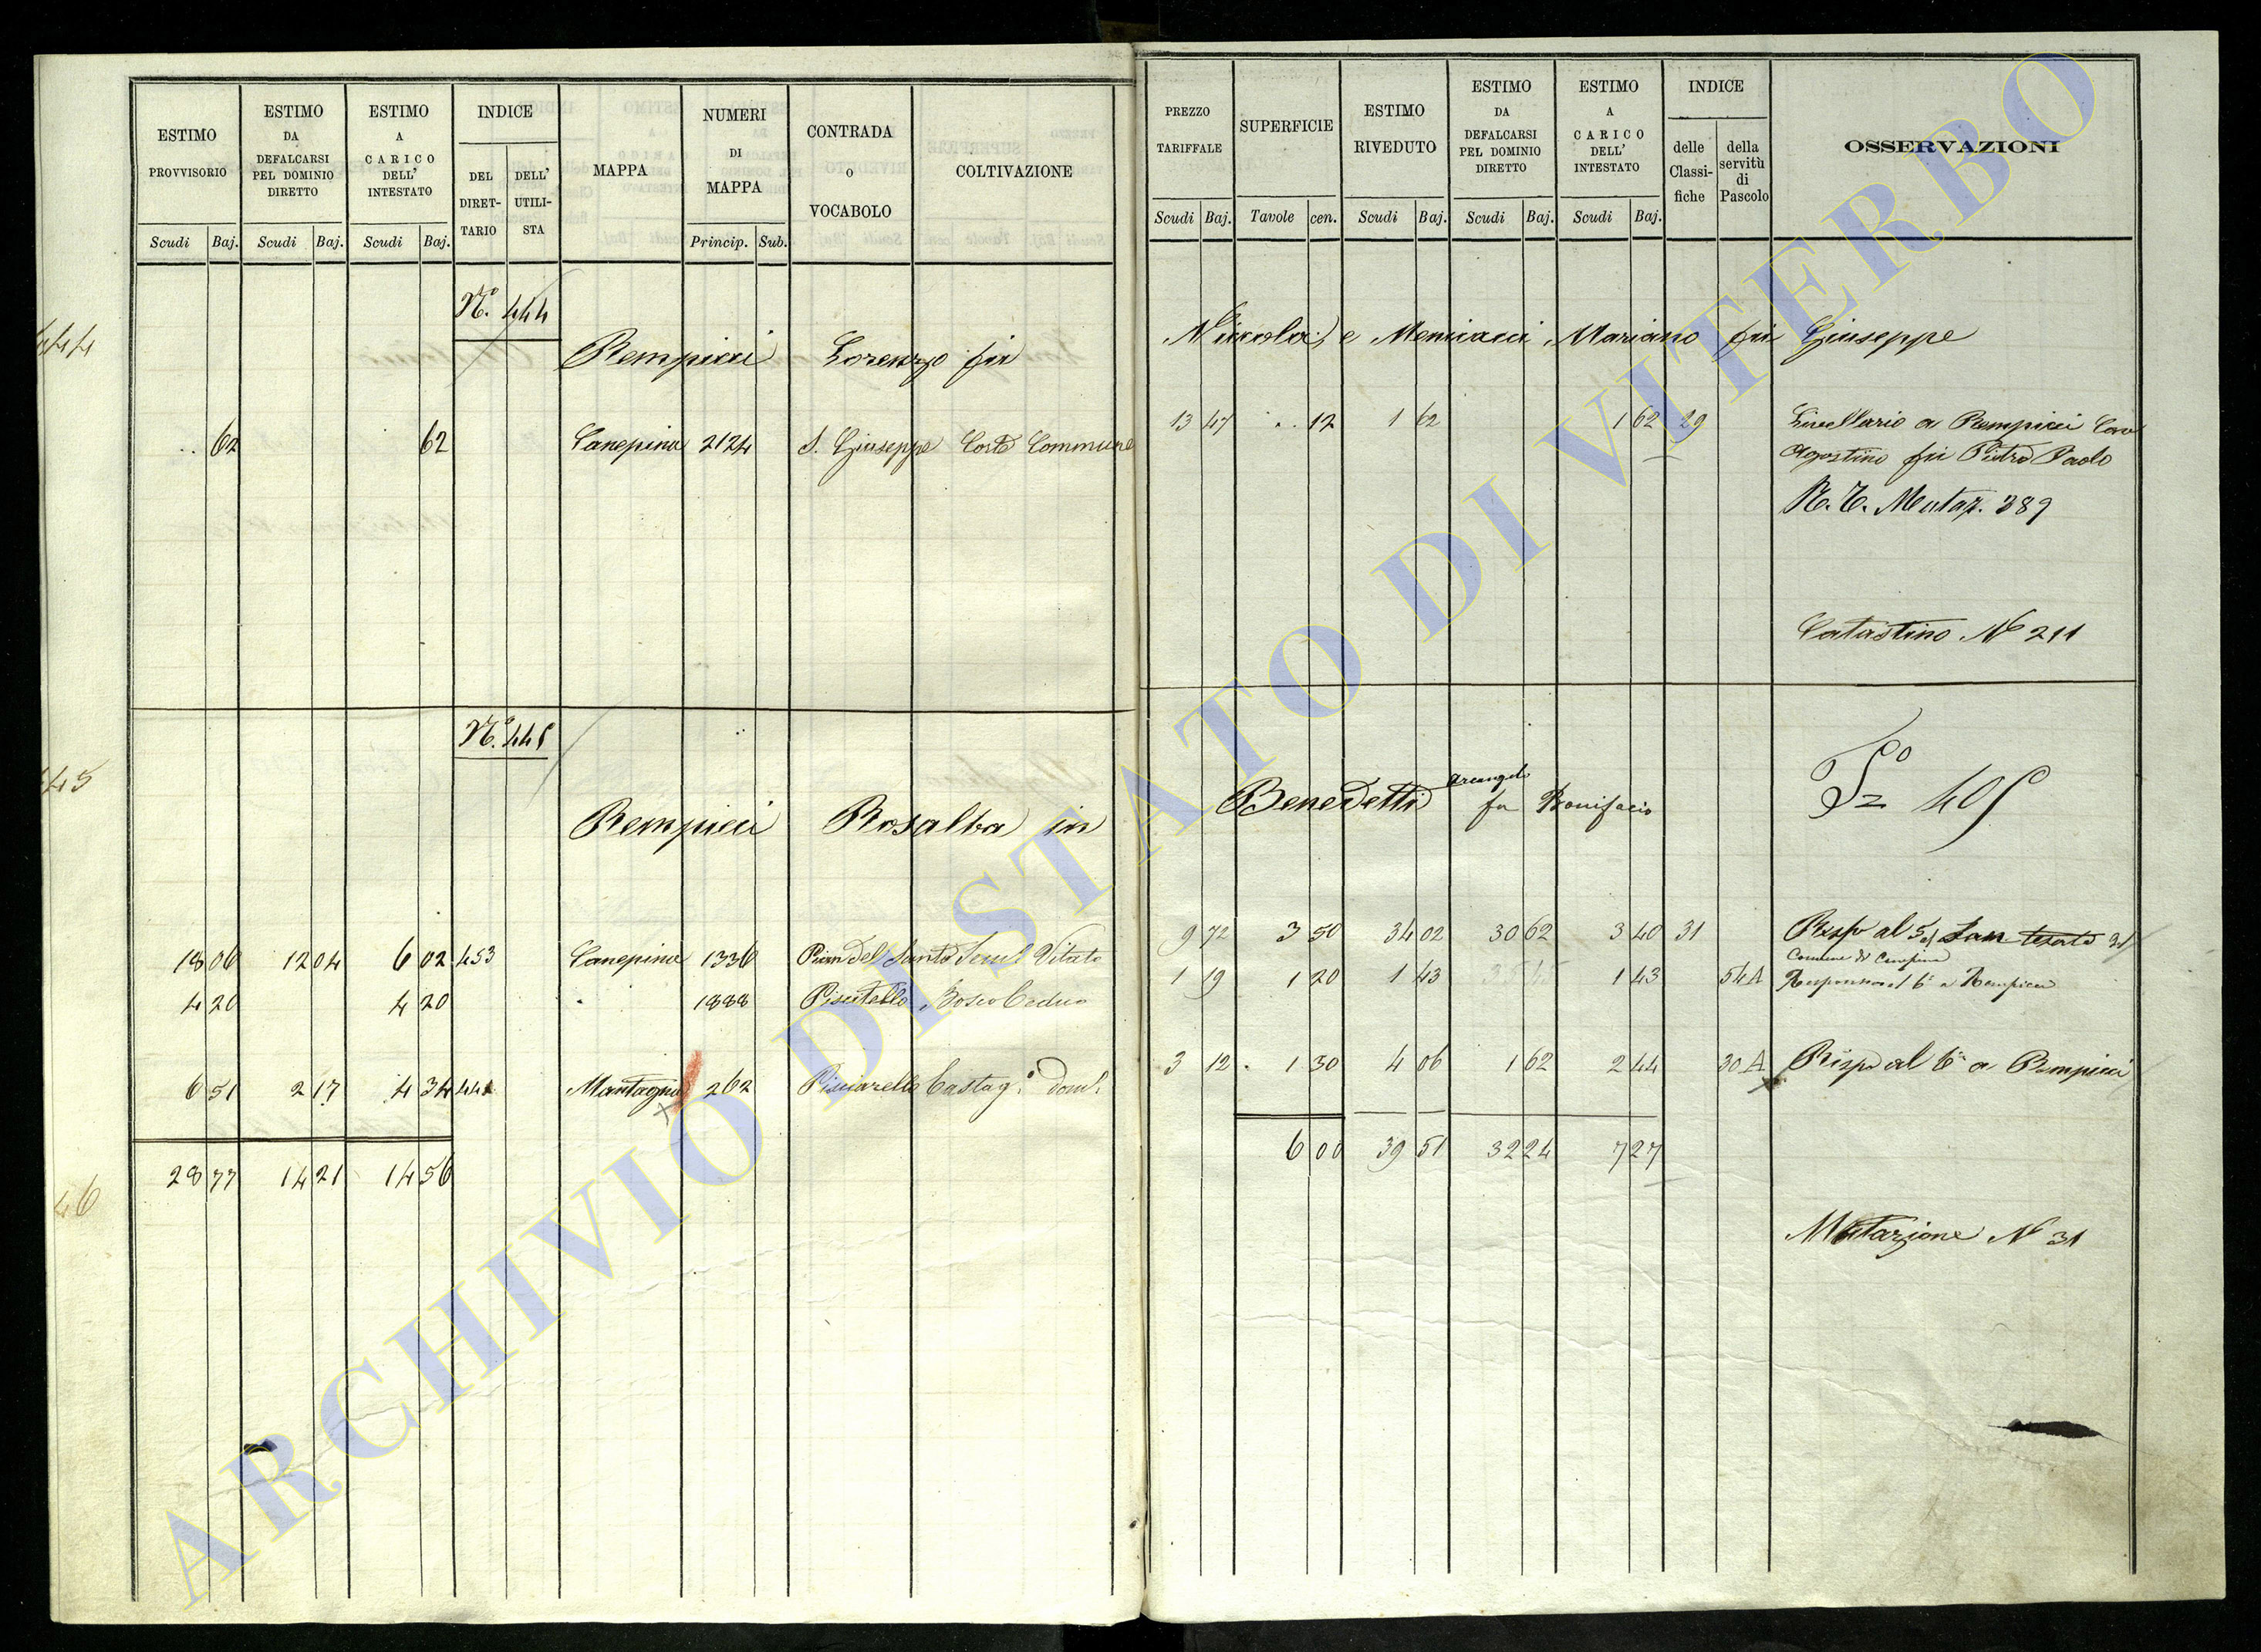 ESTIMO PROVVISORIO
ESTIMO DA DEFALCARSI PEL DOMINIO DIRETTO
ESTIMO A CARICO DELL' INTESTATO
INDICE
DEL DIRET-TARIO
DELL' UTILI-STA
MAPPA
NUMERI DI MAPPA
CONTRADA O VOCABOLO
COLTIVAZIONE
Scudi Baj. Scudi Baj. Scudi Baj. Princip. Sub.
N.° 444
444
Rempicci Lorenzo fu
62 62 Canepina 2124 S. Giuseppe Corte Commune
N.° 445
445
Rempicci Rosalba in
18 06 12 04 6 02 453 Canepina 1336 Pian del Santo Seml. Vitato
4 20 4 20 1888 Piscitello Bosco Ceduo
6 51 2 17 4 34 442 Mantagna 262 Pisciarello Castag. dom.
28 77 14 21 14 56
46
PREZZO TARIFFALE
SUPERFICIE
ESTIMO RIVEDUTO
ESTIMO DA DEFALCARSI PEL DOMINIO DIRETTO
ESTIMO A CARICO DELL' INTESTATO
INDICE
delle Classi-fiche
della servitù di Pascolo
OSSERVAZIONI
Scudi Baj. Tavole cen. Scudi Baj. Scudi Baj. Scudi Baj.
Niccola, e Menicacci Mariano fu Giuseppe
13 47 12 1 62 1 62 29 Livellario a Rempicci
Agostino fu Pietro Paolo
N. C. Mutaz. 389
Catastino N° 211
Benedetti Arcangelo fu Bonifacio
405
9 72 3 50 34 02 30 62 3 40 31 Risp al 5
Comune di Canepina
1 19 1 20 1 43 1 43 54 A Rempicci
3 12 1 30 4 06 1 62 2 44 30 A Risp al 6° a Rempicci
6 00 39 51 32 24 7 27
Mutazione N 31
ARCHIVIO DI STATO DI VITERBO